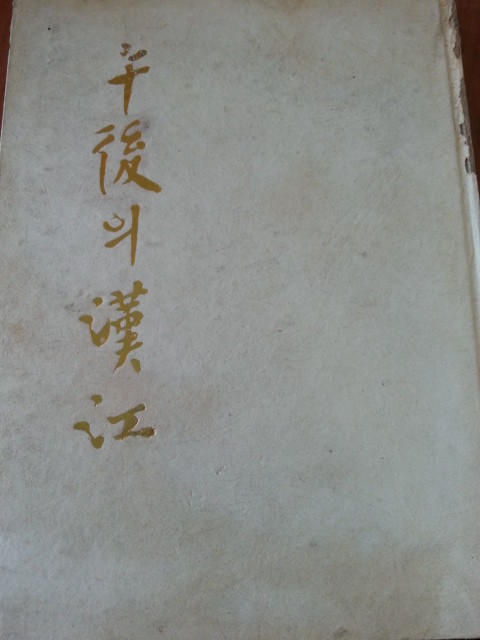 午後의漢江